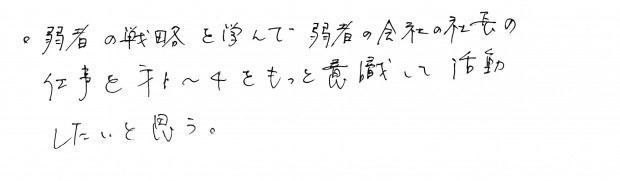 。弱者の戦略を学んで弱者の会社の社長の
仕事を ~4をもっと意識して活動
したいと思う。